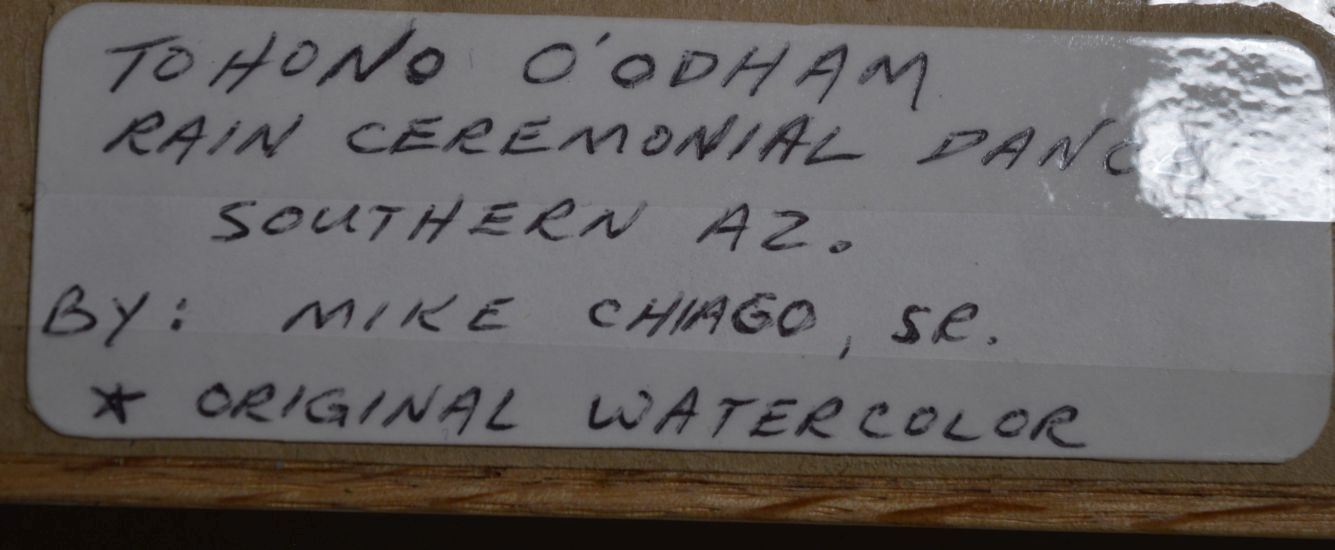 TOHONO O'ODHAM
RAIN CEREMONIAL
SOUTHERN AZ.
BY: MIKE CHIAGO, SR.
* ORIGINAL WATERCOLOR